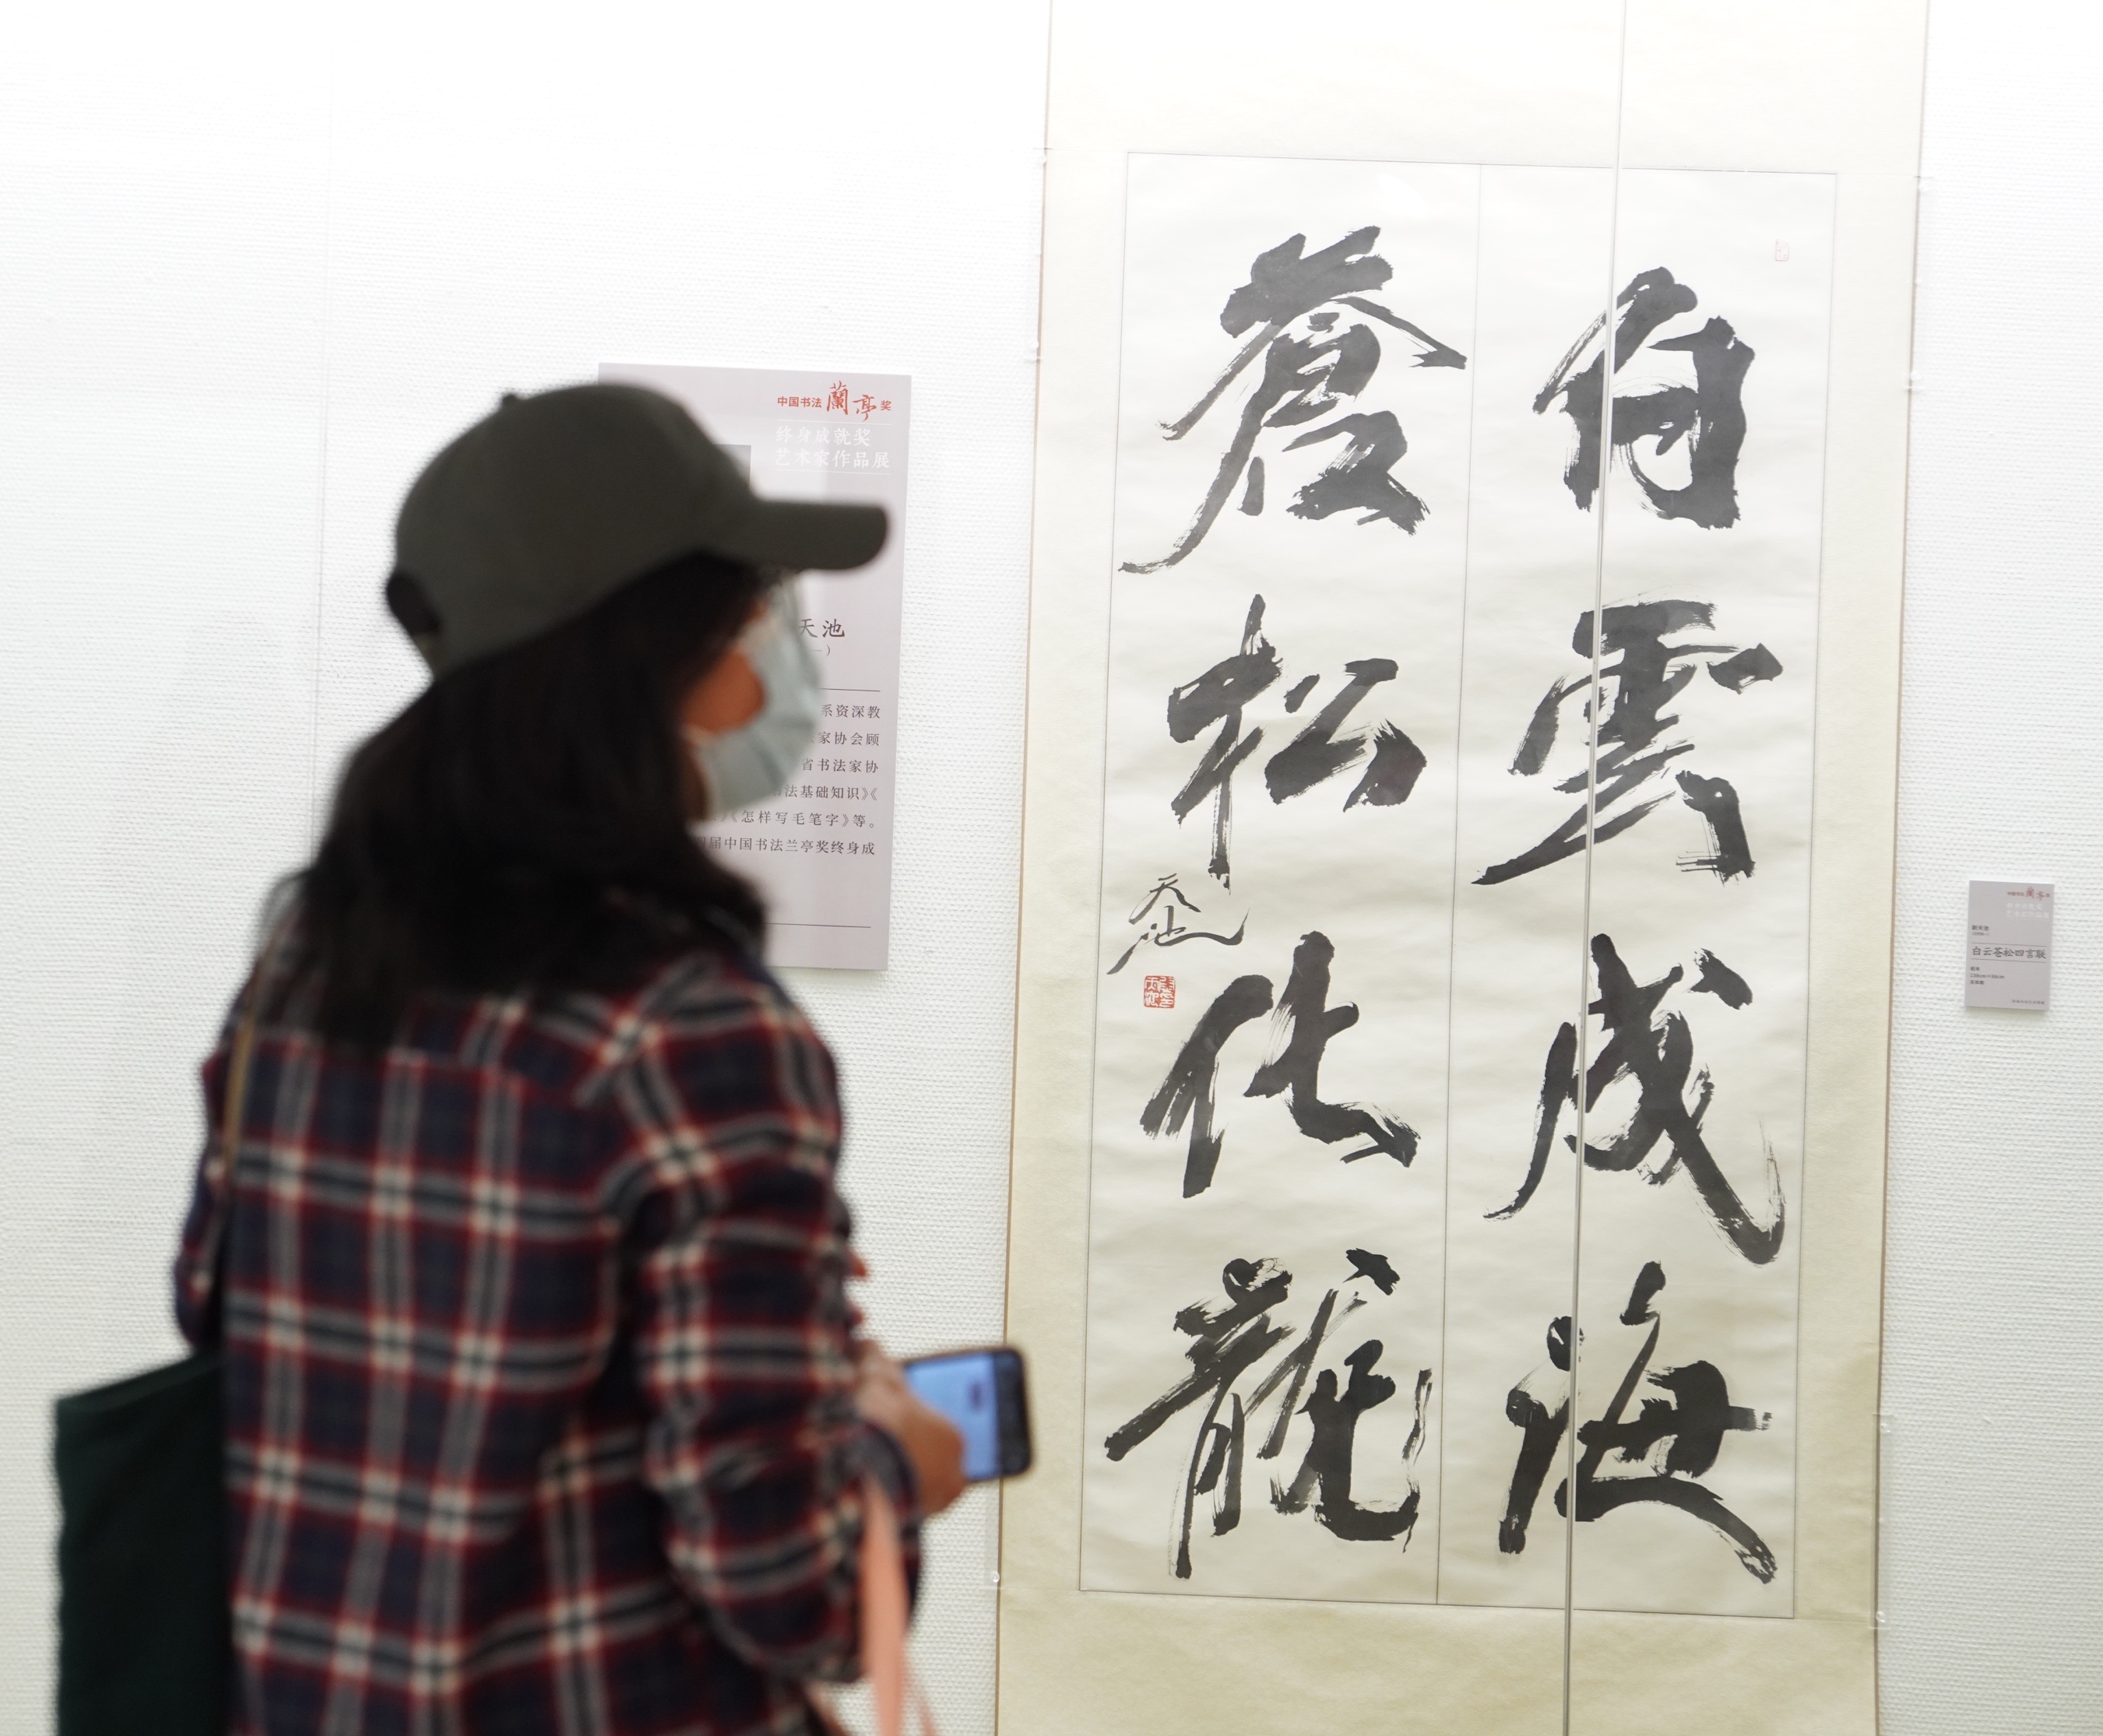 白雲成海
蒼松化龍
天池
中国书法蘭亭奖
终身成就奖
艺术家作品展
天池
系资深教
家协会顾
省书法家协
法基础知识》《
》《怎样写毛笔字》等。
届中国书法兰亭奖终身成
蘭亭
白云苍松四言联